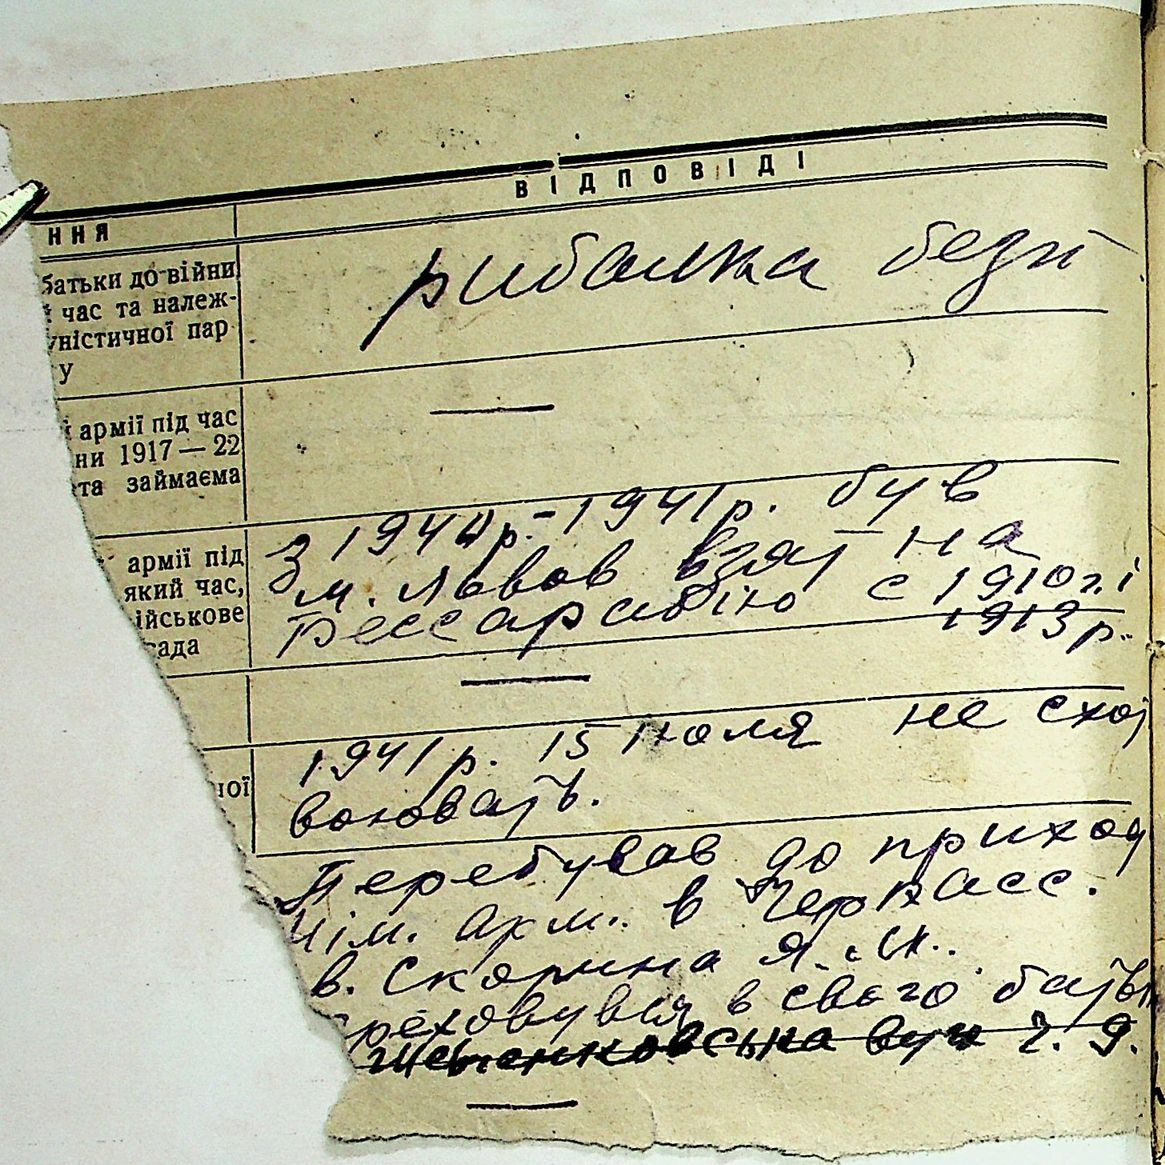 ВІДПОВІДІ
ння
батьки до війни
час та належ-
уністичної пар
у
рибалка безп
армії під час
ни 1917 — 22
та займаєма
армії під
який час,
ійськове
сада
З 1940р.-1941р. був
м. Львов взят на
Бессарабію с 1910г. і
1913 р.
ної
1941 р. 15 июля не схот
воювать.
Перебував до приход
Нім. арм. в Черкасс.
в. Скорина Я. М.
реховувся в свего батьк
вул ч. 9.